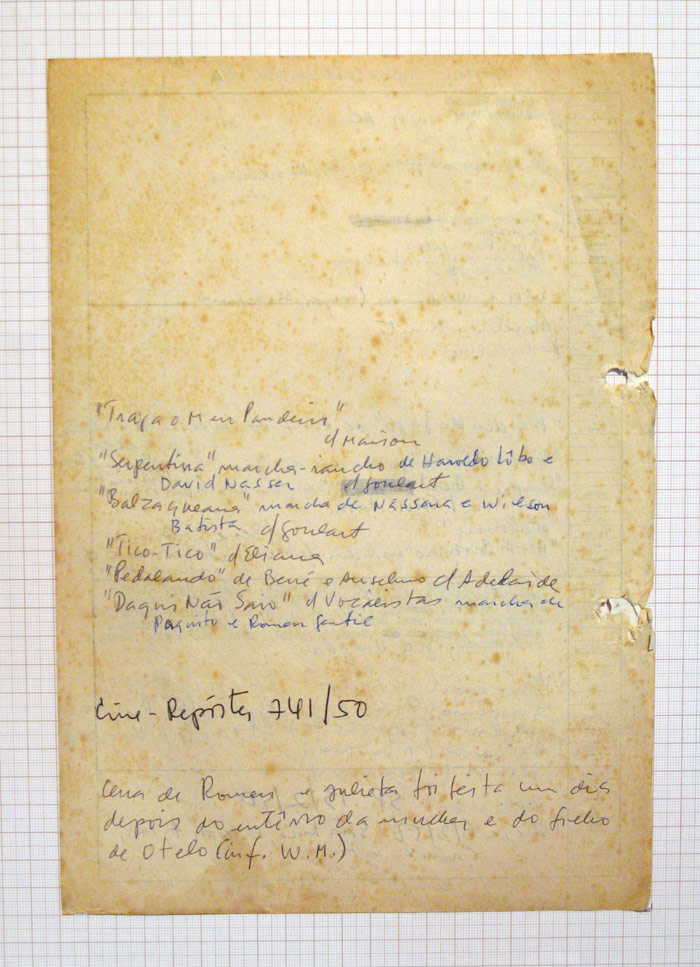 "Traga o Meu Pandeiro"
c/ Marion
"Serpentina" marcha-rancho de Haroldo Lôbo e
David Nasser c/ Goulart
"Balzaqueana" marcha de Nássara e Wilson
Batista c/ Goulart
"Tico-Tico" c/ Eliana
"Pedalando" de Bené e Anselmo c/ Adelaide
"Daqui Não Saio" c/ Vocalistas marcha de
Paquito e Romeu Gentil
Cine-Repórter 741/50
Cena de Romeu e Julieta foi feita um dia
depois do entêrro da mulher e do filho
de Otelo (inf. W.M.)